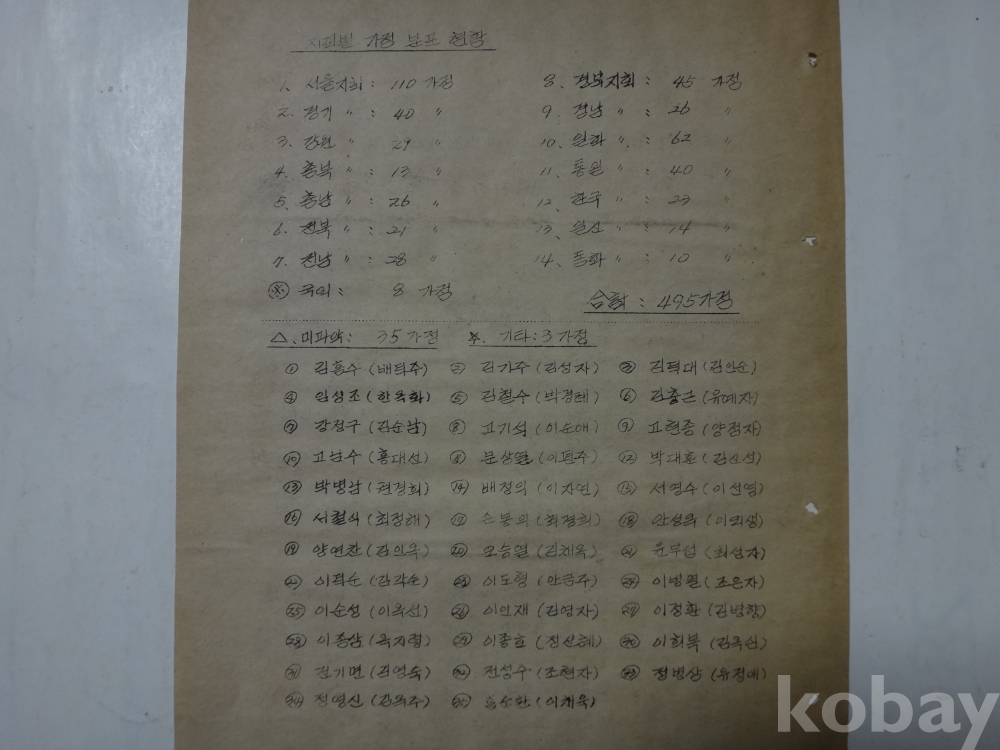 지회별 가정 분포 현황
1. 서울지회 : 110 가정 8. 경북지회 : 45 가정
2. 경기 〃 : 40 〃 9. 경남 〃 : 26 〃
3. 강원 〃 : 29 〃 10. 원화 〃 : 62 〃
4. 충북 〃 : 13 〃 11. 통일 〃 : 40 〃
5. 충남 〃 : 26 〃 12. 한국 〃 : 23 〃
6. 전북 〃 : 21 〃 13. 일신 〃 : 14 〃
7. 전남 〃 : 28 〃 14. 동화 〃 : 10 〃
※ 국외 : 8 가정 合計 : 495가정
△. 미파악 : 35가정 기타 : 3가정
① 김흥수 ② 김기주 (김성자) ③ 김택대 (김안순)
④ 임성조 (한옥화) ⑤ 김철수 (박경례) ⑥ (유예자)
⑦ 강정구 (김순남) ⑧ 고기석 (이순애) ⑨ 고현종 (양점자)
⑩ 고남수 (홍대선) ⑪ 문상열 (이편주) ⑫ 박대훈 (김신선)
⑬ 박병남 (현정희) ⑭ 배정의 (이자연) ⑮ 서영수 (이선영)
⑯ 서철식 (최정해) ⑰ 손동의 (최결희) ⑱
⑲ 양연찬 (김의옥) ⑳ 오승열 (김채옥) ㉑ 윤무섭 (최섭자)
㉒ 이덕순 ㉓ 이도형 ㉔ 이범열 (조은자)
㉕ 이순성 (이옥선) ㉖ 이인재 (김영자) ㉗ 이정환 (김병향)
㉘ 이종삼 (옥지렴) ㉙ 이종효 (정신혜) ㉚ 이희복 (김옥신)
㉛ 전기면 (김영숙) ㉜ 전성수 (조현자) ㉝ 정병상 (유정애)
㉞ 정영신 (김옥주) ㉟ (이채옥)
kobay